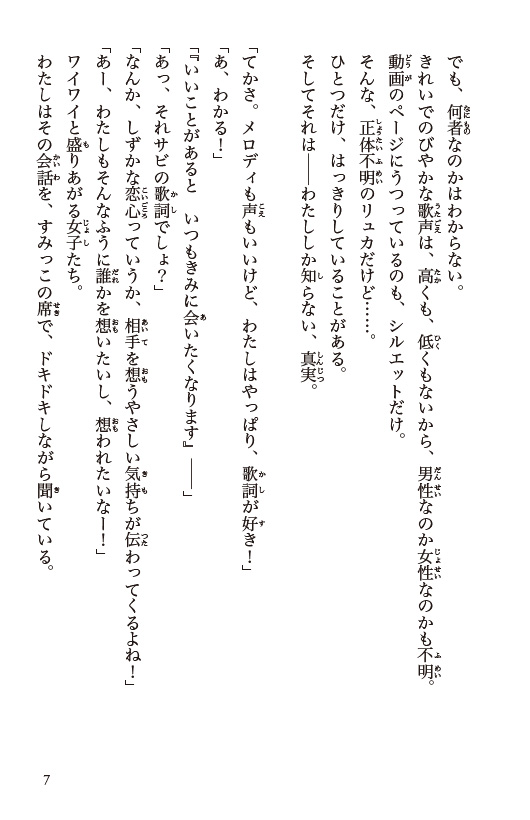 でも、何者なのかはわからない。
きれいでのびやかな歌声は、高くも、低くもないから、男性なのか女性なのかも不明。
動画のページにうつっているのも、シルエットだけ。
そんな、正体不明のリュカだけど……。
ひとつだけ、はっきりしていることがある。
そしてそれは――わたししか知らない、真実。
「てかさ。メロディも声もいいけど、わたしはやっぱり、歌詞が好き！」
「あ、わかる！」
「『いいことがあると　いつもきみに会いたくなります』――」
「あっ、それサビの歌詞でしょ？」
「なんか、しずかな恋心っていうか、相手を想うやさしい気持ちが伝わってくるよね！」
「あー、わたしもそんなふうに誰かを想いたいし、想われたいなー！」
ワイワイと盛りあがる女子たち。
わたしはその会話を、すみっこの席で、ドキドキしながら聞いている。
7